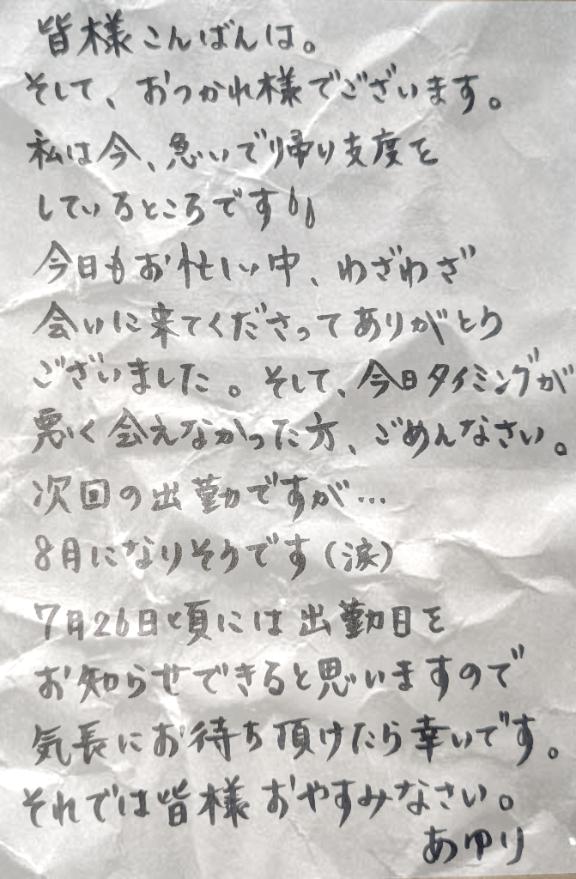 皆様こんばんは。
そして、おつかれ様でございます。
私は今、急いで帰り支度を
しているところです
今日もお忙しい中、わざわざ
会いに来てくださってありがとう
ございました。そして、今日タイミングが
悪く会えなかった方、ごめんなさい。
次回の出勤ですが…
8月になりそうです(涙)
7月26日頃には出勤日を
お知らせできると思いますので
気長にお待ち頂けたら幸いです。
それでは皆様おやすみなさい。
あゆり